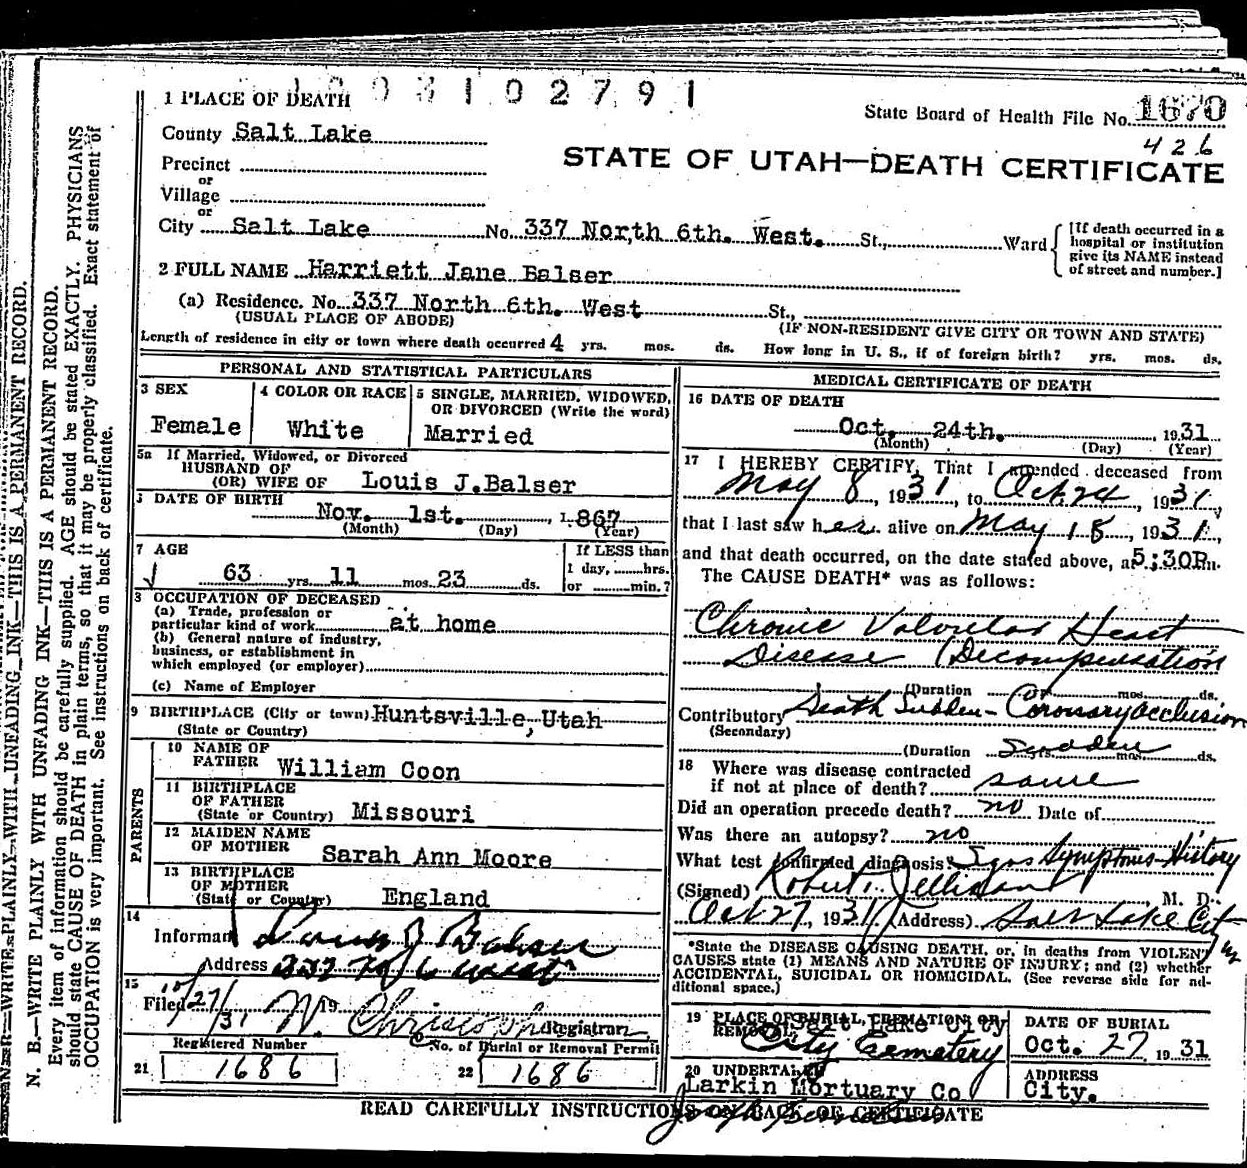 1003102791
1 PLACE OF DEATH
State Board of Health File No. 1670
426
County Salt Lake
STATE OF UTAH—DEATH CERTIFICATE
Precinct
or
Village
or
City Salt Lake No. 337 North 6th. West. St., Ward
[If death occurred in a
hospital or institution
give its NAME instead
of street and number.]
2 FULL NAME Harriett Jane Balser
(a) Residence. No. 337 North 6th. West St.,
(USUAL PLACE OF ABODE) (IF NON-RESIDENT GIVE CITY OR TOWN AND STATE)
Length of residence in city or town where death occurred 4 yrs. mos. ds. How long in U. S., if of foreign birth? yrs. mos. ds.
PERSONAL AND STATISTICAL PARTICULARS
3 SEX
Female
4 COLOR OR RACE
White
5 SINGLE, MARRIED, WIDOWED,
OR DIVORCED (Write the word)
Married
5a If Married, Widowed, or Divorced
HUSBAND OF
(OR) WIFE OF Louis J.Balser
DATE OF BIRTH
Nov. 1st. , 1867
(Month) (Day) (Year)
7 AGE
63 yrs. 11 mos. 23 ds.
If LESS than
1 day, hrs.
or min.?
8 OCCUPATION OF DECEASED
(a) Trade, profession or
particular kind of work at home
(b) General nature of industry,
business, or establishment in
which employed (or employer)
(c) Name of Employer
9 BIRTHPLACE (City or town) Huntsville, Utah
(State or Country)
PARENTS
10 NAME OF
FATHER William Coon
11 BIRTHPLACE
OF FATHER
(State or Country) Missouri
12 MAIDEN NAME
OF MOTHER Sarah Ann Moore
13 BIRTHPLACE
OF MOTHER
(State or Country) England
14
Informant Louis J Balser
Address 337 No 6 West
15
Filed 10/27/31 19 Registrar
Registered Number
21 1686
No. of Burial or Removal Permit
22 1686
MEDICAL CERTIFICATE OF DEATH
16 DATE OF DEATH
Oct. 24th. , 1931
(Month) (Day) (Year)
17 I HEREBY CERTIFY, That I attended deceased from
May 8, 1931, to Oct 24, 1931,
that I last saw her alive on May 18, 1931,
and that death occurred, on the date stated above, at 5:30P.m.
The CAUSE DEATH* was as follows:
Chronic Valvular Heart
Disease (Decompensation
(Duration yrs. mos. ds.
Contributory Death Sudden - Coronary Occlusion
(Secondary)
(Duration Sudden mos. ds.
18 Where was disease contracted
if not at place of death? same
Did an operation precede death? no Date of
Was there an autopsy? no
What test confirmed diagnosis? Signs Symptoms - History
(Signed) Robert , M. D.
Oct 27, 1931 (Address) Salt Lake City
*State the DISEASE CAUSING DEATH, or, in deaths from VIOLENT
CAUSES state (1) MEANS AND NATURE OF INJURY; and (2) whether
ACCIDENTAL, SUICIDAL OR HOMICIDAL. (See reverse side for additional space.)
19 PLACE OF BURIAL, CREMATION OR
REMOVAL Salt Lake City
City Cemetery
DATE OF BURIAL
Oct. 27 1931
20 UNDERTAKER
Larkin Mortuary Co
ADDRESS
City.
READ CAREFULLY INSTRUCTIONS ON BACK OF CERTIFICATE
N. B.—WRITE PLAINLY WITH UNFADING INK—THIS IS A PERMANENT RECORD.
Every item of information should be carefully supplied. AGE should be stated EXACTLY. PHYSICIANS
should state CAUSE OF DEATH in plain terms, so that it may be properly classified. Exact statement of
OCCUPATION is very important. See instructions on back of certificate.